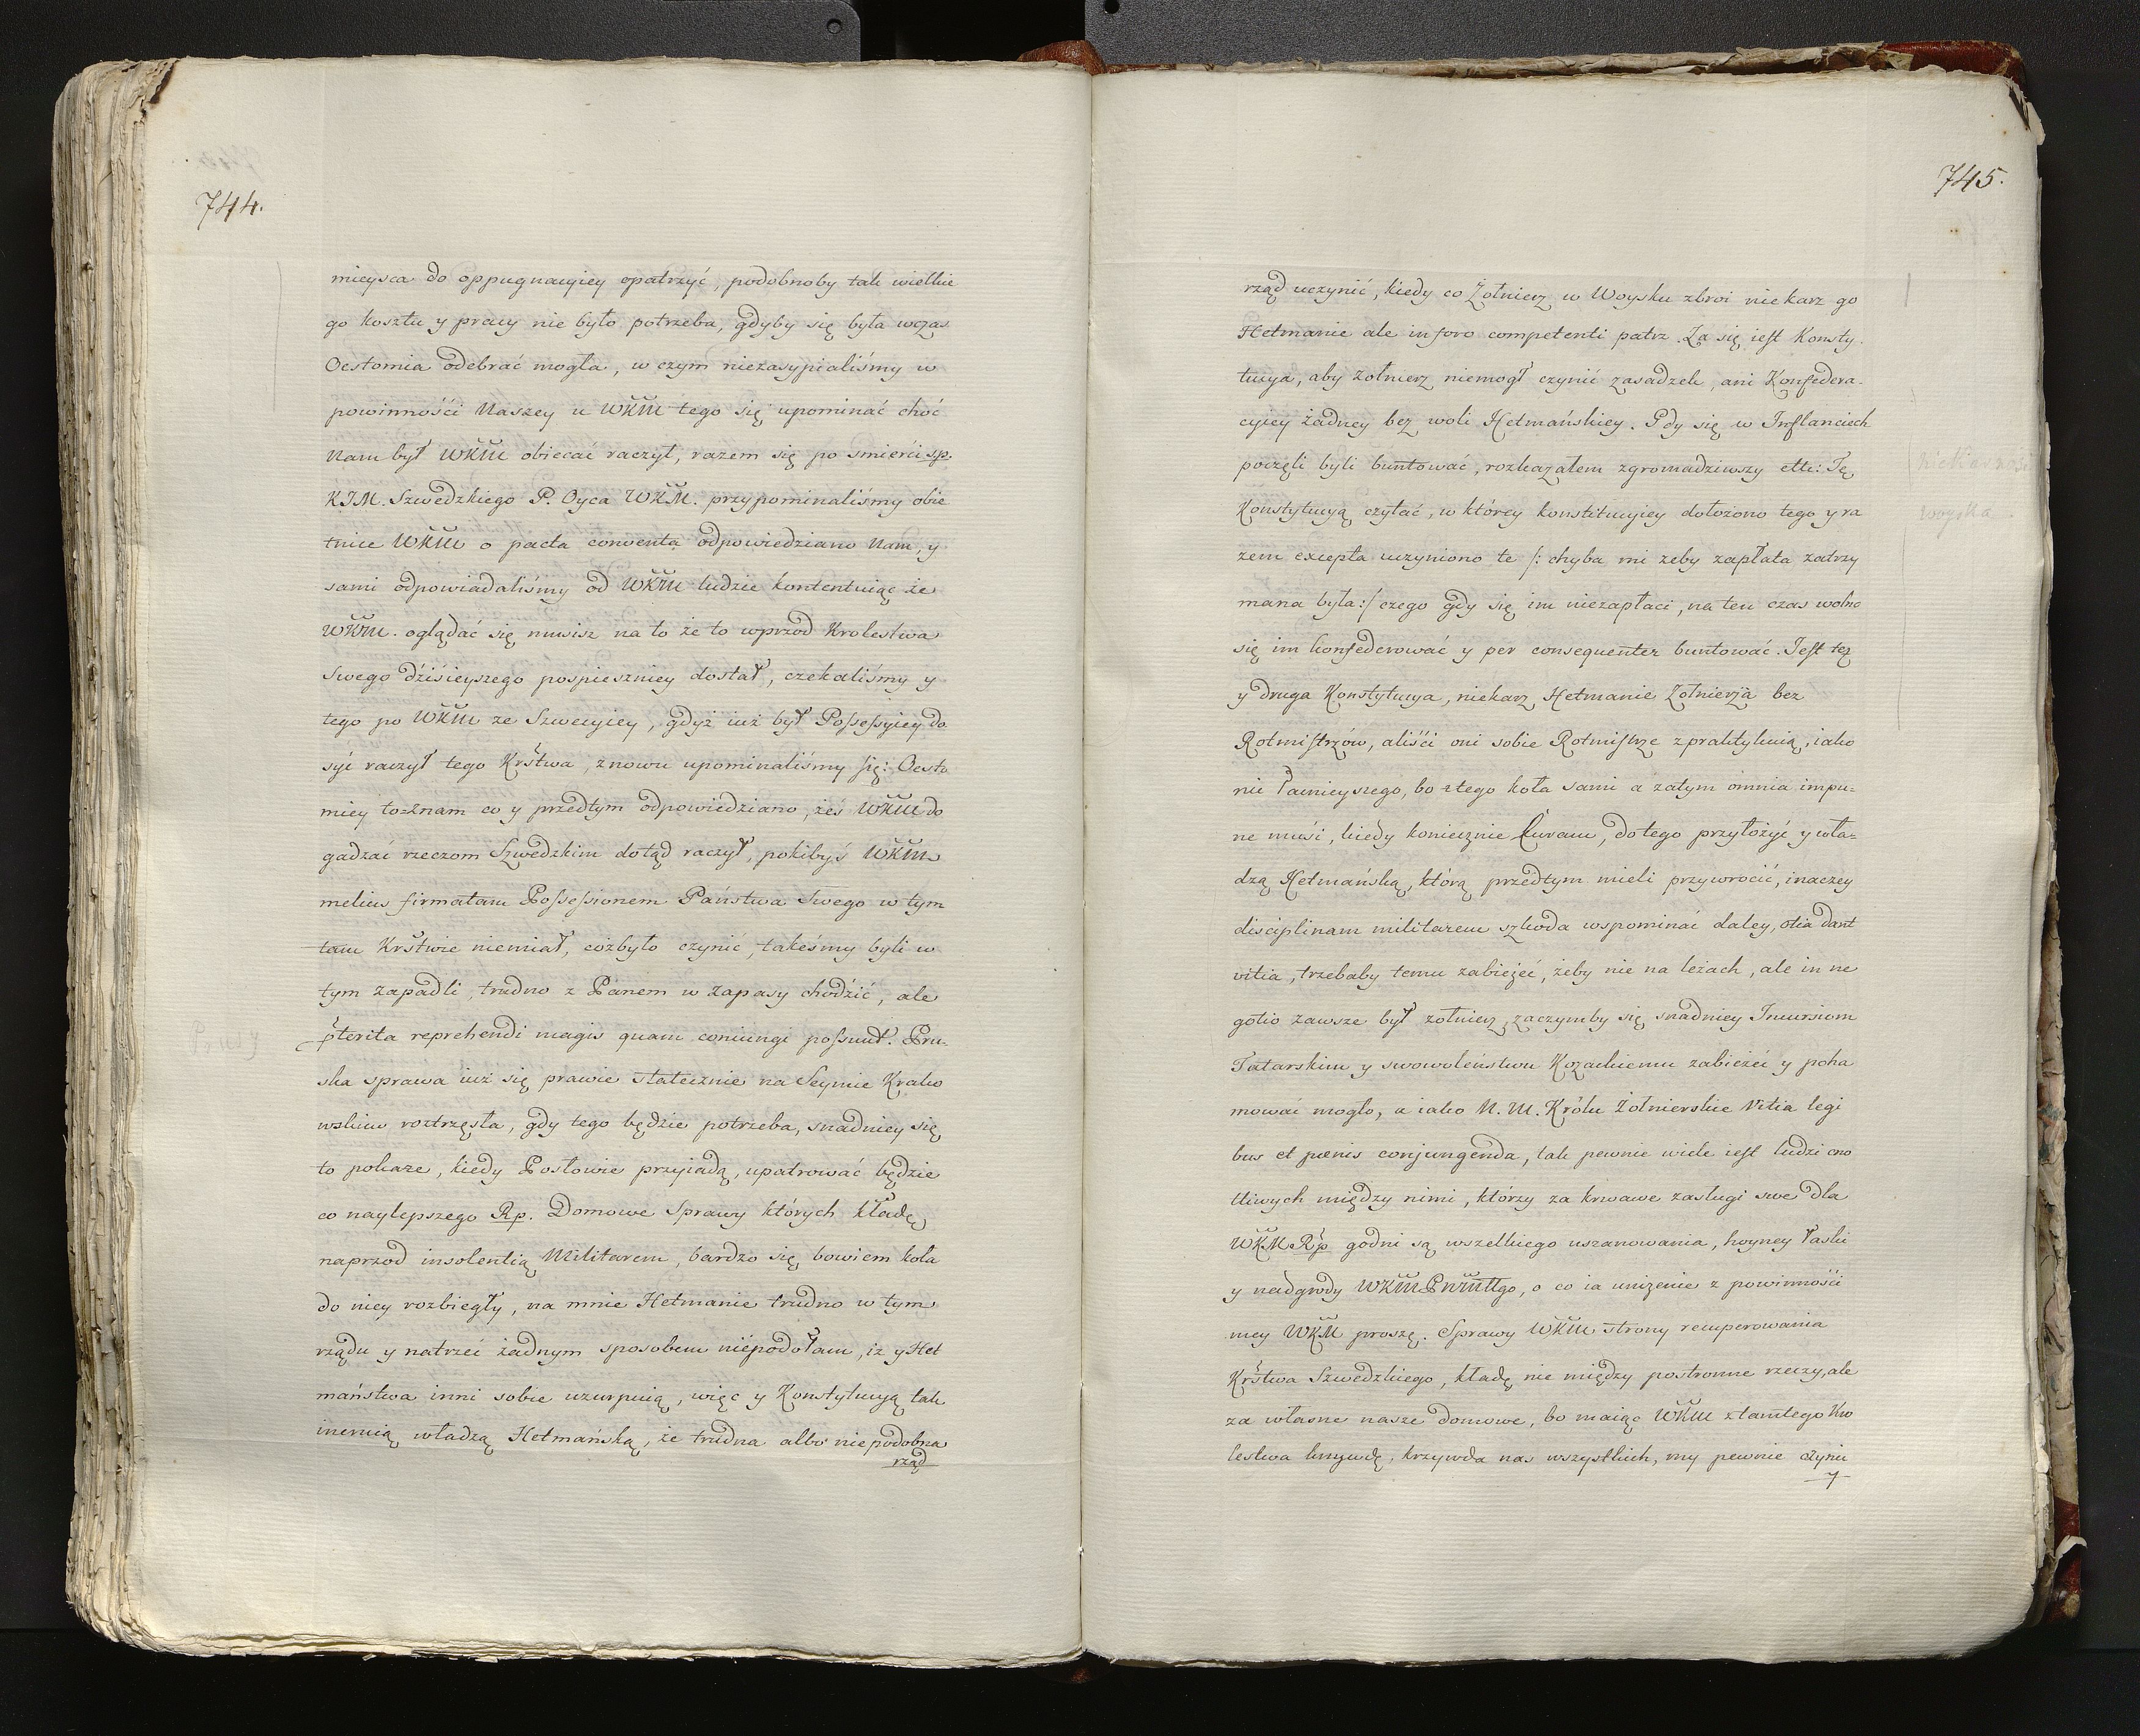 744.
mieysca do oppugnacyiey opatrzyć, podobnoby tak wielkie
go kosztu y pracy nie było potrzeba, gdyby się była wczas
Oestomia odebrać mogła, w czym niezasypialiśmy w
powinnośći Naszey u WKM tego się upominać choć
Nam był WKM obiecać raczył, razem się po śmierći sp.
KJM. Szwedzkiego P. Oyca WKM. przypominaliśmy obie
tnice WKM o pacta conventa odpowiedziano Nam, y
sami odpowiadaliśmy od WKM ludzie kontentuiąc że
WKM. oglądać się musisz na to że to wprzod Krolestwa
Swego dźiśieyszego pospieszniey dostał, czekaliśmy y
tego po WKM ze Szwecyiey, gdyż iuż był Possessyiey do
syć raczył tego Krśtwa, znowu upominaliśmy się: Oesto
miey to=Znam co y przedtym odpowiedziano, żeś WKM do
gadzać rzeczom Szwedzkim dotąd raczył, pokibyś WKM
melius firmatam Possessionem Państwa Swego w tym
tam Krśtwie niemiał, cożbyło czynić, takeśmy byli w
tym zapadli, trudno z Panem w Zapasy chodźić, ale
pterita reprehendi magis quam coniungi possunt. Pru-
Prusy
ska sprawa iuż się prawie statecznie na Seymie Krako
wskim roztrzęsła, gdy tego będzie potrzeba, snadniey się
to pokaże, kiedy Posłowie przyiadą, upatrować będzie
co naylepszego Rp. Domowe Sprawy których kładę
naprzod insolentią Militarem, bardzo się bowiem koła
do niey rozbiegły, na mnie Hetmanie trudno w tym
rządu y natrzeć żadnym sposobem niepodołam, iż y Het
maństwa inni sobie uzurpuią, więc y Konstytucyą tak
inermią władzą Hetmańską, że trudna albo niepodobna
rząd
745.
rząd uczynić, kiedy co Żołnierz w Woysku zbroi niekarz go
Hetmanie ale in foro competenti patrz. Za się iest Konsty.
tucya, aby żołnierz niemogł czynić zasadzek, ani Konfedera-
cyiey żadney bez woli Hetmańskiey. Gdy się w Inflanciech
poczęli byli buntować, rozkazałem zgromadziwszy ettc: Tę
Konstytucyą czytać, w którey konstitucyiey dołożono tego y ra
zem excepta uczyniono te /: chyba mi żeby zapłata zatrzy
mana była:/ czego gdy się im niezapłaci, na ten czas wolno
się im konfederować y per consequenter buntować. Jest też
y druga Konstytucya, niekarz Hetmanie Żołnierza bez
Rotmistrzów, aliśći oni sobie Rotmistrze zpraktykuią, iako
nic łacnieyszego, bo z tego koła sami a zatym omnia impu=
ne muśi, kiedy koniecznie Curam, do tego przyłożyć y wła=
dzą Hetmańską, którą przedtym mieli przywrocić, inaczey
disciplinam militarem szkoda wspominać daley, otia dant
vitia, trzebaby temu zabieżeć, żeby nie na leżach, ale in ne
gotio zawsze był żołnierz, zaczymby się snadniey Incursiom
Tatarskim y swowoleństwu Kozackiemu zabieżeć y poha
mować mogło, a iako N. M. Królu Żołnierskie Vitia legi
bus et pœnis conjungenda, tak pewnie wiele iest ludzi cno
tliwych między nimi, którzy za krwawe zasługi swe dla
WKM Rp godni są wszelkiego uszanowania, hoyney łaski
y nadgrody WKM PnMttgo, o co ia uniżenie z powinnośći
mey WKM proszę. Sprawy WKM strony recuperowania
Krśtwa Szwedzkiego, kładę nie między postronne rzeczy, ale
za własne nasze domowe, bo maiąc WKM z tamtego Kro
lestwa krzywdę, krzywda nas wszystkich, my pewnie czyni
y
niekarność
woyska